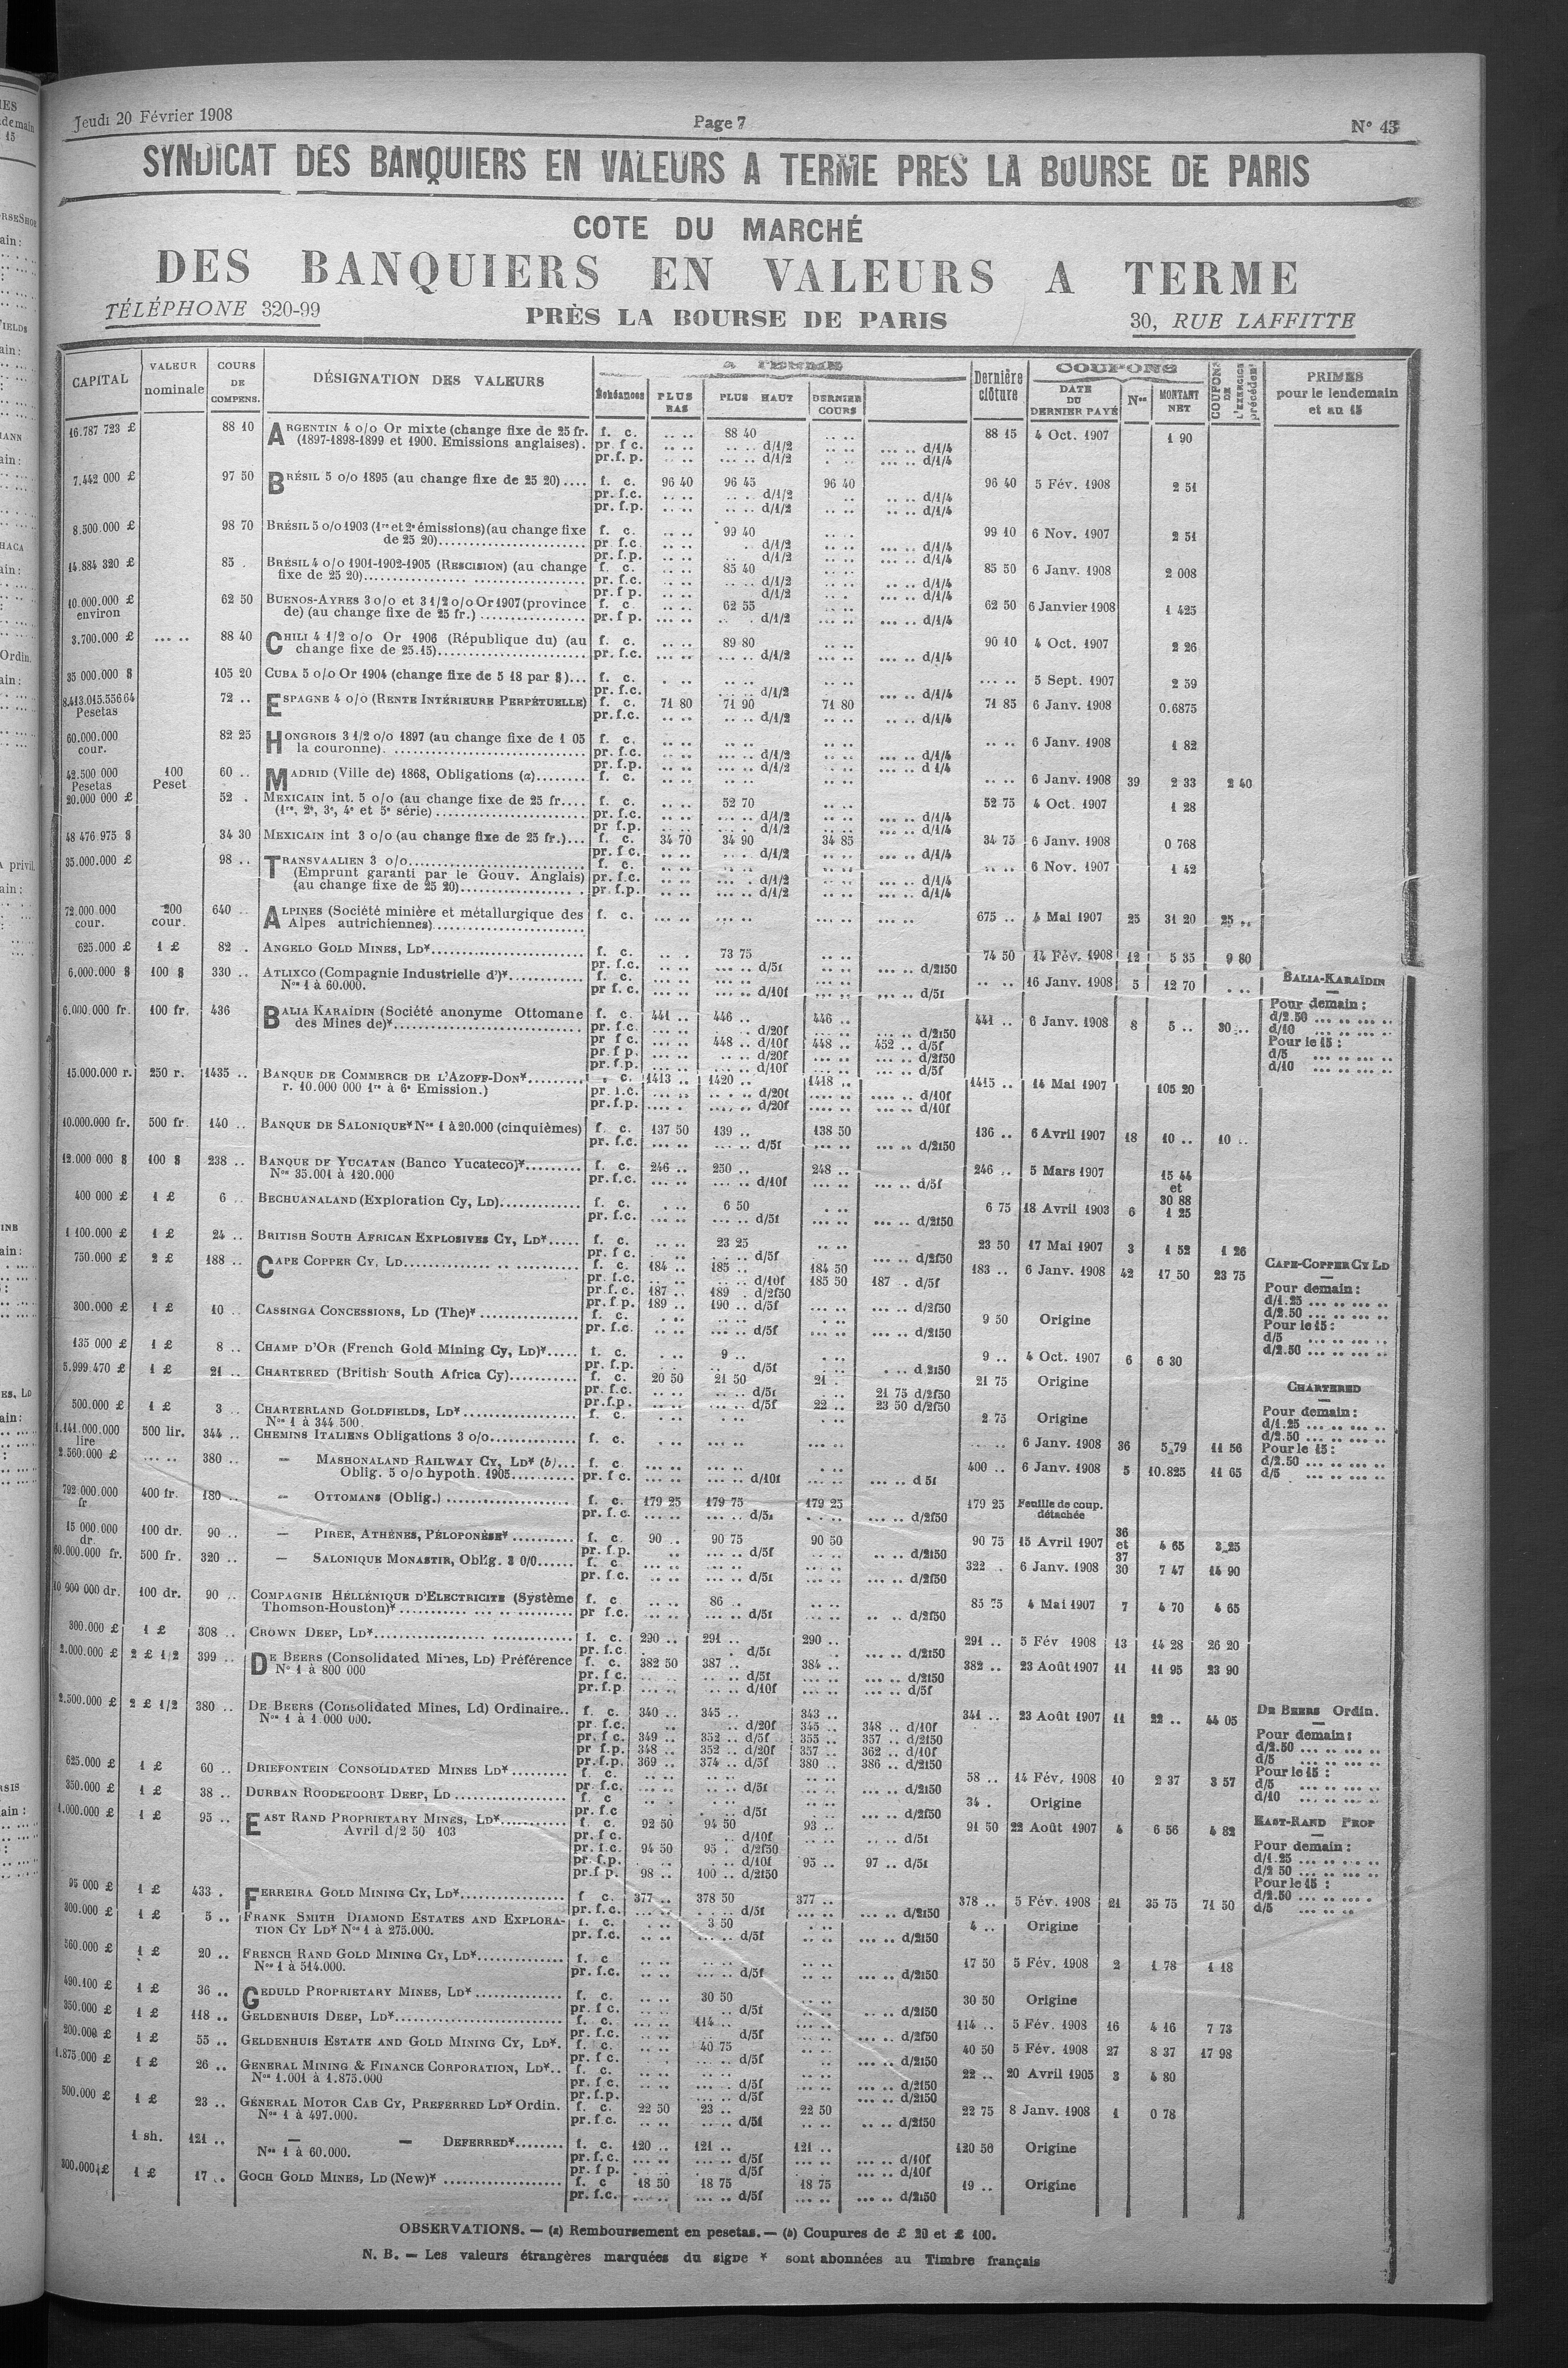 Jeudi 20 Février 1908 Page 7 N° 43
SYNDICAT DES BANQUIERS EN VALEURS A TERME PRES LA BOURSE DE PARIS
COTE DU MARCHÉ
DES BANQUIERS EN VALEURS A TERME
TÉLÉPHONE 320-99 PRÈS LA BOURSE DE PARIS 30, RUE LAFFITTE
CAPITAL VALEUR nominale COURS DE COMPENS. DÉSIGNATION DES VALEURS A TERME Échéances PLUS BAS PLUS HAUT DERNIER COURS Dernière clôture COUPONS DATE DU DERNIER PAYÉ Nos MONTANT NET COUPONS DE L'EXERCICE précédent PRIMES pour le lendemain et au 15
16.787 723 £ 88 10 ARGENTIN 4 o/o Or mixte (change fixe de 25 fr. f. c. .. .. 88 40 .. .. 88 15 4 Oct. 1907 1 90
(1897-1898-1899 et 1900. Emissions anglaises). pr. f c. .. .. .. .. d/1/2 .. .. ... .. d/1/4
pr.f. p. .. .. .. .. d/1/2 . .. ... .. d/1/4
7.442 000 £ 97 50 BRÉSIL 5 o/o 1895 (au change fixe de 25 20).... f. c. 96 40 96 45 96 40 96 40 5 Fév. 1908 2 51
pr. f.c. .. .. .. .. d/1/2 .. .. .. d/1/4
pr. f.p. .. .. .. .. d/1/2 .. .. .. .. d/1/4
8.500.000 £ 98 70 BRÉSIL 5 o/o 1903 (1re et 2e émissions) (au change fixe f. c. .. .. 99 40 .. .. 99 10 6 Nov. 1907 2 51
de 25 20)........................ pr f.c. .. .. .. d/1/2 .. .. ... .. d/1/4
pr. f.p. .. .. d/1/2 .. .. ... .. d/1/4
14.884 320 £ 85 . BRÉSIL 4 o/o 1901-1902-1905 (RESCISION) (au change f. c. .. .. 85 40 .. .. 85 50 6 Janv. 1908 2 008
fixe de 25 20)................................ pr. f.c. .. .. .. .. d/1/2 .. .. ... .. d/1/4
pr. f p. .. .. d/1/2 .. .. ... .. d/1/4
10.000.000 £ environ 62 50 BUENOS-AYRES 3 o/o et 3 1/2 o/o Or 1907 (province f. c. .. .. 62 55 .. .. 62 50 6 Janvier 1908 1 425
de) (au change fixe de 25 fr.) ................ pr. f p. ... .. .. . d/1/2 ... .. ... .. d/1/4
3.700.000 £ ... .. 88 40 CHILI 4 1/2 o/o Or 1906 (République du) (au f. c. .. .. 89 80 .. .. 90 10 4 Oct. 1907 2 26
change fixe de 25.15)........................ pr. f.c. ... .. ... .. d/1/2 ... .. ... .. d/1/4
35 000.000 $ 105 20 CUBA 5 o/o Or 1904 (change fixe de 5 18 par $)... f. c. . .. .. .. .. .. ... .. 5 Sept. 1907 2 59
pr. f.c. .. .. .. .. d/1/2 .. .. ... .. d/1/4
8.413.015.556 64 Pesetas 72 .. ESPAGNE 4 o/o (RENTE INTÉRIEURE PERPÉTUELLE) f. c. 71 80 71 90 71 80 71 85 6 Janv. 1908 0.6875
pr. f.c. .. .. .. .. d/1/2 .. .. .. .. d/1/4
60.000.000 cour. 82 25 HONGROIS 3 1/2 o/o 1897 (au change fixe de 1 05 f. c. .. .. .. .. .. .. .. .. 6 Janv. 1908 1 82
la couronne). .............................. pr. f.c. .. .. ... .. d/1/2 .. .. ... .. d/1/4
pr. f.p. .. .. ... .. d/1/2 .. .. ... .. d 1/4
42.500 000 Pesetas 100 Peset 60 .. MADRID (Ville de) 1868, Obligations (a)......... f. c. .. .. .. .. .. .. .. .. 6 Janv. 1908 39 2 33 2 40
20.000 000 £ 52 . MEXICAIN int. 5 o/o (au change fixe de 25 fr.... f. c. .. .. 52 70 .. .. 52 75 4 Oct. 1907 1 28
(1re, 2e, 3e, 4e et 5e série) ......................... pr. f.c. .. .. ... .. d/1/2 .. .. ... .. d/1/4
pr f.p. .. .. ... .. d/1/2 .. .. ... .. d/1/4
48 476 975 $ 34 30 MEXICAIN int 3 o/o (au change fixe de 25 fr.)... f. c. 34 70 34 90 34 85 34 75 6 Janv. 1908 0 768
pr. f c. .. .. ... .. d/1/2 .. .. ... .. d/1/4
35.000.000 £ 98 .. TRANSVAALIEN 3 o/o............................ f. c. .. .. .. .. .. .. .. .. 6 Nov. 1907 1 42
(Emprunt garanti par le Gouv. Anglais) pr. f.c. .. .. ... .. d/1/2 .. .. ... .. d/1/4
(au change fixe de 25 20).................. pr. f.p. .. .. ... .. d/1/2 .. .. ... .. d/1/4
72.000 000 cour. 200 cour. 640 .. ALPINES (Société minière et métallurgique des f. c. ... .. ... .. ... .. ... .. 675 .. 4 Mai 1907 25 31 20 25 ..
Alpes autrichiennes)........................
625.000 £ 1 £ 82 . ANGELO GOLD MINES, LD*........................ f. c. .. . 73 75 .. .. 74 50 14 Fév. 1908 12 5 35 9 80
pr. f.c. .. .. ... .. d/5f .. .. ... .. d/2f50
6.000.000 $ 100 $ 330 .. ATLIXCO (Compagnie Industrielle d')*............ f. c. ... .. ... .. ... .. .. .. 16 Janv. 1908 5 12 70 . .. BALIA-KARAÏDIN
Nos 1 à 60.000. pr f. c. ... .. ... .. d/10f ... .. ... .. d/5f
6.000.000 fr. 100 fr. 436 BALIA KARAÏDIN (Société anonyme Ottomane f. c. 441 .. 446 .. 446 .. 441 .. 6 Janv. 1908 8 5 .. 30 .. Pour demain :
des Mines de)*.............................. pr. f.c. ... .. .. d/20f ... .. ... .. d/2f50 d/2.50 ... .. ... ..
pr f c. ... .. 448 .. d/10f 448 .. 452 .. d/5f d/10 ... .. ... ..
pr. f p. ... .. .. .. d/20f ... .. ... .. d/2f50 Pour le 15 :
pr. f.p. ... .. ... .. d/10f ... .. ... .. d/5f d/5 ... .. ... ..
d/10 ... .. ... ..
15.000.000 r. 250 r. 1435 .. BANQUE DE COMMERCE DE L'AZOFF-DON*......... f. c. 1413 .. 1420 .. 1418 .. 1415 .. 14 Mai 1907 105 20
r. 10.000 000 1re à 6e Emission.) pr. f.c. ... .. .. .. d/20f .... .. .... .. d/10f
pr. f.p. .... . .... .. d/20f .... .. .... .. d/10f
10.000.000 fr. 500 fr. 140 .. BANQUE DE SALONIQUE* Nos 1 à 20.000 (cinquièmes) f. c. 137 50 139 .. 138 50 136 .. 6 Avril 1907 18 10 .. 10 ..
pr. f.c. ... .. ... .. d/5f ... .. ... .. d/2f50
12.000 000 $ 100 $ 238 .. BANQUE DE YUCATAN (Banco Yucateco)*......... f. c. 246 .. 250 .. 248 .. 246 .. 5 Mars 1907 15 44 et 30 88
Nos 35.001 à 120.000 pr. f.c. ... .. ... .. d/10f ... .. ... .. d/5f
400 000 £ 1 £ 6 .. BECHUANALAND (Exploration Cy, LD)............. f. c. . .. 6 50 . .. 6 75 18 Avril 1903 6 1 25
pr. f.c. ... .. ... .. d/5f .. .. ... .. d/2f50
1 100.000 £ 1 £ 24 .. BRITISH SOUTH AFRICAN EXPLOSIVES CY, LD*..... f. c. .. .. 23 25 .. .. 23 50 17 Mai 1907 3 1 52 1 26
pr. f c. .. .. .. .. d/5f ... .. d/2f50
750.000 £ 2 £ 188 .. CAPE COPPER CY, LD............................ f. c. 184 .. 185 .. 184 50 183 .. 6 Janv. 1908 42 17 50 23 75 CAPE-COPPER CY LD
pr. f.c. ... .. .. .. d/10f 185 50 187 . d/5f Pour demain :
pr. f.c. 187 .. 189 . d/2f50 d/1.25 ... .. ... ..
pr. f.p. 189 .. 190 .. d/5f ... .. ... .. d/2f50 d/2.50 ... .. ... ..
Pour le 15 :
d/5 ... .. ... ..
d/2.50 ... .. ... ..
300.000 £ 1 £ 10 .. CASSINGA CONCESSIONS, LD (The)* ................ f. c. . .. .. .. . .. 9 50 Origine
pr. f.c. .. .. ... .. d/5f ... .. ... .. d/2f50
135 000 £ 1 £ 8 .. CHAMP D'OR (French Gold Mining Cy, LD)*..... f. c. . .. 9 .. . .. 9 .. 4 Oct. 1907 6 6 30
pr. f.p. .. .. .. d/5f . .. .. . d 2f50
5.999.470 £ 1 £ 21 .. CHARTERED (British South Africa Cy)........... f. c. 20 50 21 50 21 . 21 75 Origine CHARTERED
pr. f.c. .. .. .. .. d/5f . .. 21 75 d/2f50
pr. f.p. .. .. .. .. d/5f 22 .. 23 50 d/2f50
Pour demain :
d/1.25 ... .. ... ..
d/2.50 ... .. ... ..
Pour le 15 :
d/2.50 ... .. ... ..
d/5 ... .. ... ..
500.000 £ 1 £ 3 .. CHARTERLAND GOLDFIELDS, LD*.................. f. c. . .. . .. . .. 2 75 Origine
Nos 1 à 344 500.
1.141.000.000 lire 500 lir. 344 .. CHEMINS ITALIENS Obligations 3 o/o.............. f. c. ... .. ... .. ... .. ... .. 6 Janv. 1908 36 5.79 11 56
2.560.000 £ ... .. 380 .. — MASHONALAND RAILWAY CY, LD* (b)... f. c. ... .. ... .. . .. 400 .. 6 Janv. 1908 5 10.825 11 65
Oblig. 5 o/o hypoth. 1905.......... pr. f c. ... .. ... .. d/10f ... .. ... .. d 5f
792.000.000 fr 400 fr. 180 .. — OTTOMANS (Oblig.) .................... f. c. 179 25 179 75 179 25 179 25 Feuille de coup. détachée
pr. f. c. ... .. ... .. d/5f ... .. ... .. d/2f50
15 000.000 dr. 100 dr. 90 .. — PIRÉE, ATHÈNES, PÉLOPONÈSE* .......... f. c. 90 .. 90 75 90 50 90 75 15 Avril 1907 36 et 37 4 65 3.25
pr. f.p. .. ... .. d/5f .. .. .. .. d/2f50
60.000.000 fr. 500 fr. 320 .. — SALONIQUE MONASTIR, Oblig. 3 0/0...... f. c. ... .. ... .. ... .. 322 .. 6 Janv. 1908 30 7 47 14 90
pr. f.c. ... .. ... .. d/5f ... .. ... .. d/2f50
10 900 000 dr. 100 dr. 90 .. COMPAGNIE HÉLLÉNIQUE D'ELECTRICITE (Système f. c. .. .. 86 .. .. .. 85 75 4 Mai 1907 7 4 70 4 65
Thomson-Houston)* ........................... pr f.c. ... .. ... .. d/5f ... .. .. .. d/2f50
300.000 £ 1 £ 308 .. CROWN DEEP, LD*............................... f. c. 290 .. 291 .. 290 .. 291 .. 5 Fév 1908 13 14 28 26 20
pr. f.c. . .. d/5f .. .. ... .. d/2f50
2.000.000 £ 2 £ 1/2 399 .. DE BEERS (Consolidated Mines, LD) Préférence f. c. 382 50 387 .. 384 .. 382 .. 23 Août 1907 11 11 95 23 90
No 1 à 800 000 pr. f c. ... .. .. .. d/5f ... .. ... .. d/2f50
pr. f.p. ... .. ... .. d/10f ... .. ... .. d/5f
2.500.000 £ 2 £ 1/2 380 .. DE BEERS (Consolidated Mines, Ld) Ordinaire.. f. c. 340 .. 345 .. 343 .. 341 .. 23 Août 1907 11 22 .. 44 05 DE BEERS Ordin.
Nos 1 à 1.000 000. pr. f.c. .. .. .. d/20f 345 .. 348 .. d/10f
pr. f c. 349 .. 352 .. d/5f 355 .. 357 .. d/2f50 Pour demain :
pr f.p. 348 .. 352 .. d/20f 357 .. 362 .. d/10f d/2.50 ... .. ... ..
pr. f.p. 369 .. 374 .. d/5f 380 .. 386 .. d/2f50 d/5 ... .. ... ..
Pour le 15 :
d/5 ... .. ... ..
d/10 ... .. ... ..
625.000 £ 1 £ 60 .. DRIEFONTEIN CONSOLIDATED MINES LD*......... f. c. .. .. .. .. .. .. 58 .. 14 Fév. 1908 10 2 37 3 57
pr. f.c. ... .. ... .. d/5f .. .. ... .. d/2f50
350.000 £ 1 £ 38 .. DURBAN ROODEPOORT DEEP, LD .................. f. c .. . .. .. .. . 34 . Origine
pr. f.c .. .. . .. d/5f .. .. ... .. d/2f50
1.000.000 £ 1 £ 95 .. EAST RAND PROPRIETARY MINES, LD*........... f. c. 92 50 94 50 93 .. 91 50 22 Août 1907 4 6 56 4 82 EAST-RAND PROP
Avril d/2 50 103 pr. f c. .. d/10f .. .. .. .. d/5f
pr. f.c. 94 50 95 . d/2f50 Pour demain :
pr. f.p. . .. .. .. d/10f 95 .. 97 .. d/5f d/1.25 ... .. ... ..
pr. f p. 98 .. 100 .. d/2f50 d/2 50 ... .. ... ..
Pour le 15 :
d/2.50 ... .. ... .
d/5 ... .. ...
95 000 £ 1 £ 433 . FERREIRA GOLD MINING CY, LD*................ f. c. 377 .. 378 50 377 .. 378 .. 5 Fév. 1908 21 35 75 71 50
pr. f.c. ... .. . .. .. d/5f ... .. ... .. d/2f50
300.000 £ 1 £ 5 .. FRANK SMITH DIAMOND ESTATES AND EXPLORA- f. c. . .. 3 50 . .. 4 .. Origine
TION CY LD* Nos 1 à 275.000. pr. f.c. .. .. ... .. d/5f .. .. ... .. d/2f50
560.000 £ 1 £ 20 .. FRENCH RAND GOLD MINING CY, LD*.............. f. c .. .. .. .. .. .. 17 50 5 Fév. 1908 2 1 78 1 18
Nos 1 à 514.000. pr. f.c. .. .. ... .. d/5f .. .. ... .. d/2f50
490.100 £ 1 £ 36 .. GEDULD PROPRIETARY MINES, LD* .............. f. c. .. .. 30 50 .. .. 30 50 Origine
pr. f c. .. .. .. d/5f .. .. .. .. d/2f50
350.000 £ 1 £ 118 .. GELDENHUIS DEEP, LD*........................... f. c. ... .. 114 .. ... .. 114 .. 5 Fév. 1908 16 4 16 7 73
pr. f.c. ... .. .. d/5f .. .. ... .. d/2f50
200.000 £ 1 £ 55 .. GELDENHUIS ESTATE AND GOLD MINING CY, LD*. f. c. .. .. 40 75 .. .. 40 50 5 Fév. 1908 27 8 37 17 98
pr. f c. .. . . .. .. d/5f .. .. ... .. d/2f50
1.875.000 £ 1 £ 26 .. GENERAL MINING & FINANCE CORPORATION, LD*.. f. c. .. .. .. .. .. .. 22 .. 20 Avril 1905 3 4 80
Nos 1.001 à 1.875.000 pr. f.c. .. .. ... .. d/5f .. .. ... .. d/2f50
pr. f.p. .. .. ... .. d/5f .. .. ... .. d/2f50
500.000 £ 1 £ 23 .. GÉNÉRAL MOTOR CAB CY, PREFERRED LD* Ordin. f. c. 22 50 23 .. 22 50 22 75 8 Janv. 1908 1 0 78
Nos 1 à 497.000. pr. f.c. .. .. ... .. d/5f .. .. .. .. d/2f50
1 sh. 121 .. — — DEFERRED*........ f. c. 120 .. 121 .. 121 .. 120 50 Origine
Nos 1 à 60.000. pr. f.c. ... .. ... .. d/5f ... .. ... .. d/10f
pr. f p. . .. d/5f ... .. d/10f
300.000 £ 1 £ 17 .. GOCH GOLD MINES, LD (New)* ................... f. c 18 50 18 75 18 75 19 .. Origine
pr. f.c. .. .. ... .. d/5f ... .. ... .. d/2f50
OBSERVATIONS. — (a) Remboursement en pesetas. — (b) Coupures de £ 20 et £ 100.
N. B. — Les valeurs étrangères marquées du signe * sont abonnées au Timbre français